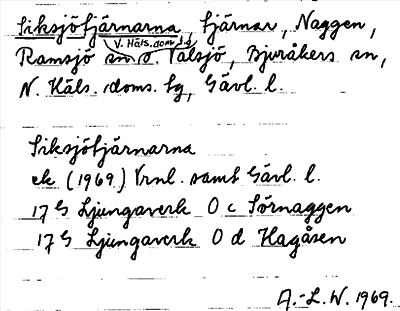 Siksjötjärnarna, tjärnar, Naggen,
V. Häls. doms. tg
Ramsjö sn o. Valsjö, Bjuråkers sn,
N. Häls. doms. tg, Gävl. l.
Siksjötjärnarna
ek (1969) Vrnl. samt Gävl. l.
17 G Ljungaverk 0 c Sörnaggen
17 G Ljungaverk 0 d Hagåsen
A.-L. W. 1969.